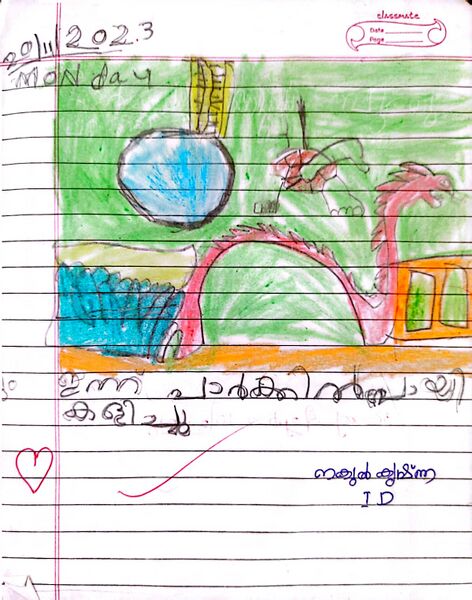 classmate
Date
Page
20/11/2023
Monday
ഇന്ന് പാർക്കിൽ പോയി
കളിച്ചു
നകുൽ കൃഷ്ണ
I D